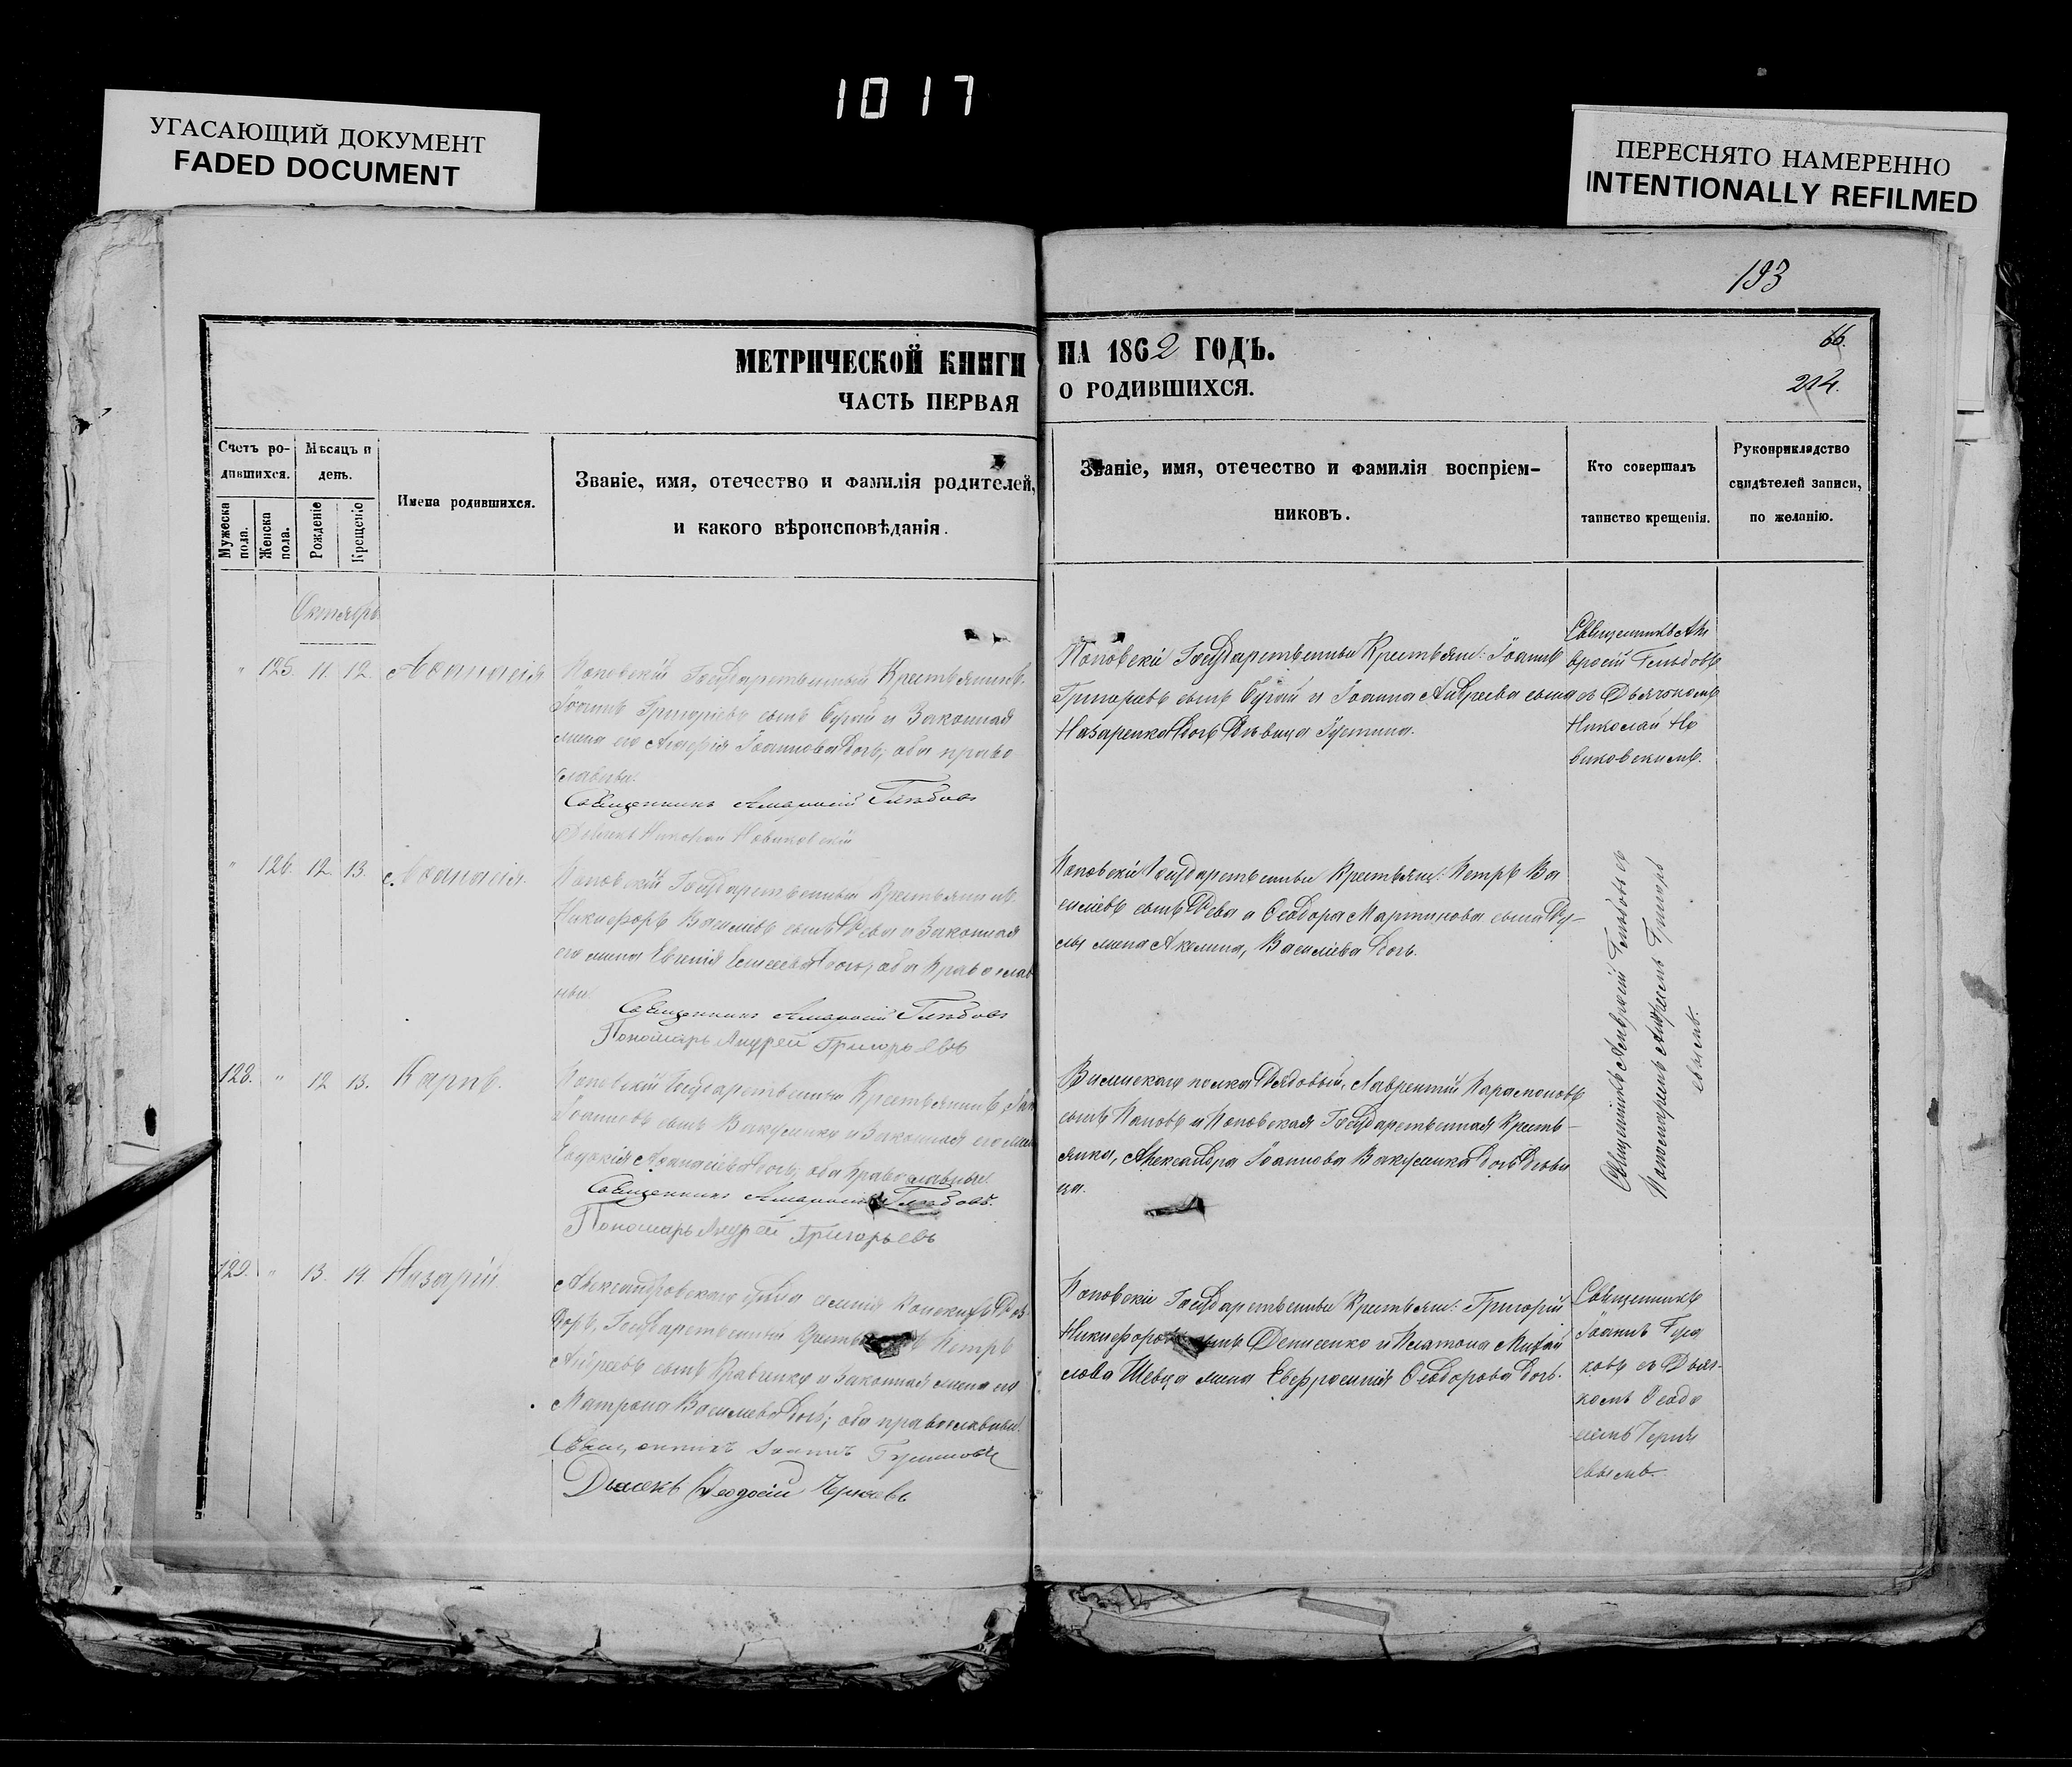 1017
УГАСАЮЩИЙ ДОКУМЕНТ
FADED DOCUMENT
ПЕРЕСНЯТО НАМЕРЕННО
INTENTIONALLY REFILMED
193
МЕТРИЧЕСКОЙ КНИГИ НА 1862 ГОДЪ.
66.
ЧАСТЬ ПЕРВАЯ О РОДИВШИХСЯ.
214.
Счетъ ро-
дившихся.
Мужеска пола.
Женска пола.
Мѣсяцъ и
день.
Рожденіе
Крещеніе
Имена родившихся.
Званіе, имя, отечество и фамилія родителей,
и какого вѣроисповѣданія.
Званіе, имя, отечество и фамилія воспріем-
никовъ.
Кто совершалъ
таинство крещенія.
Рукоприкладство
свидѣтелей записи,
по желанію.
Октябрь
" 125. 11. 12. Аѳанасія
Поповскій Государственный Крестьянинъ
Іоаннъ Григоріевъ сынъ Бугай и Законная
жена его Агафія Іоаннова дочь; оба право
славные.
Священникъ Амвросій Глѣбовъ
Дьячекъ Николай Новиковскій
Поповскіе Государственные Крестьяне: Іоаннъ
Григорьевъ сынъ Бугай и Іоанна Андреева сына
Назаренка дочь Дѣвица Іустина.
Священникъ Ам
вросій Глѣбовъ
съ Дьячкомъ
Николай Но
виковскимъ.
" 126. 12. 13. Аѳанасія.
Поповскій Государственный Крестьянинъ
Никифоръ Василіевъ сынъ и Законная
его жена Евгенія дочь; оба Православ
ные.
Священникъ Амвросій Глѣбовъ
Пономарь Андрей Григорьевъ
Поповскіе Государственные Крестьяне: Петръ Ва
силіевъ сынъ и Ѳеодора Мартинова сына
жена Акилина, Василіева дочь.
Священникъ Амвросій Глѣбовъ съ
Пономаремъ Андреемъ Григорь
евымъ.
128. " 12 13. Карпъ.
Поповскій Государственный Крестьянинъ
Іоанновъ сынъ Вакуленко и Законная его жена
Евдокія Аѳанасіева дочь; оба Православные
Священникъ Амвросій Глѣбовъ.
Пономарь Андрей Григорьевъ
полка Рядовый, Лаврентій Парамоновъ
сынъ Поповъ и Поповская Государственная Кресть-
янка, Александра Іоаннова Вакуленка дочь Дѣви
ца.
129. " 13. 14. Назарій
Александровскаго уѣзда
Государственный Петръ
Андреевъ сынъ Кравченко и Законная жена его
Матрона Василіева дочь; оба православные.
Священникъ Іоаннъ
Дьячекъ Ѳеодосій Черняевъ
Поповскіе Государственные Крестьяне: Григорій
Никифоровъ сынъ Денисенко и Платона Михай
лова Шевца жена Евфросинія Ѳеодорова дочь.
Священникъ
Іоаннъ
съ Дьяч-
комъ Ѳеодо
сіемъ Черня
евымъ.